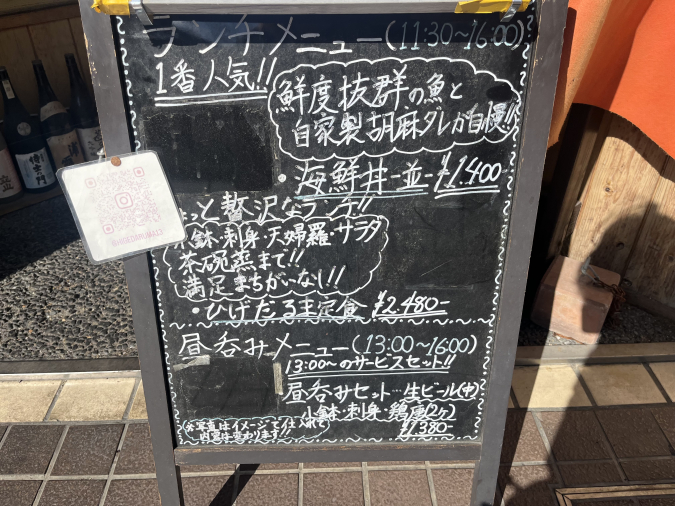 ランチメニュー(11:30~16:00)
1番人気!!
鮮度抜群の魚と
自家製胡麻ダレが自慢!!
・海鮮丼-並-¥1,400
っと贅沢なランチ!!
小鉢・刺身・天婦羅・サラダ
茶碗蒸まで!!
満足まちがいなし!!
・ひげだるま定食 ¥2,480-
昼呑みメニュー(13:00~16:00)
13:00~のサービスセット!!
昼呑みセット…生ビール(中)
小鉢・刺身・鶏唐(2ヶ)
¥1,380-
※写真はイメージで仕入れで
内容は変わります!!